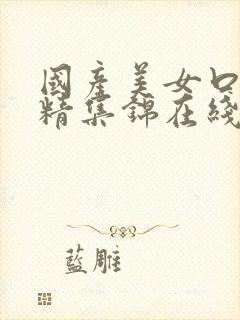 國產美女口
精集錦在綫
藍雕